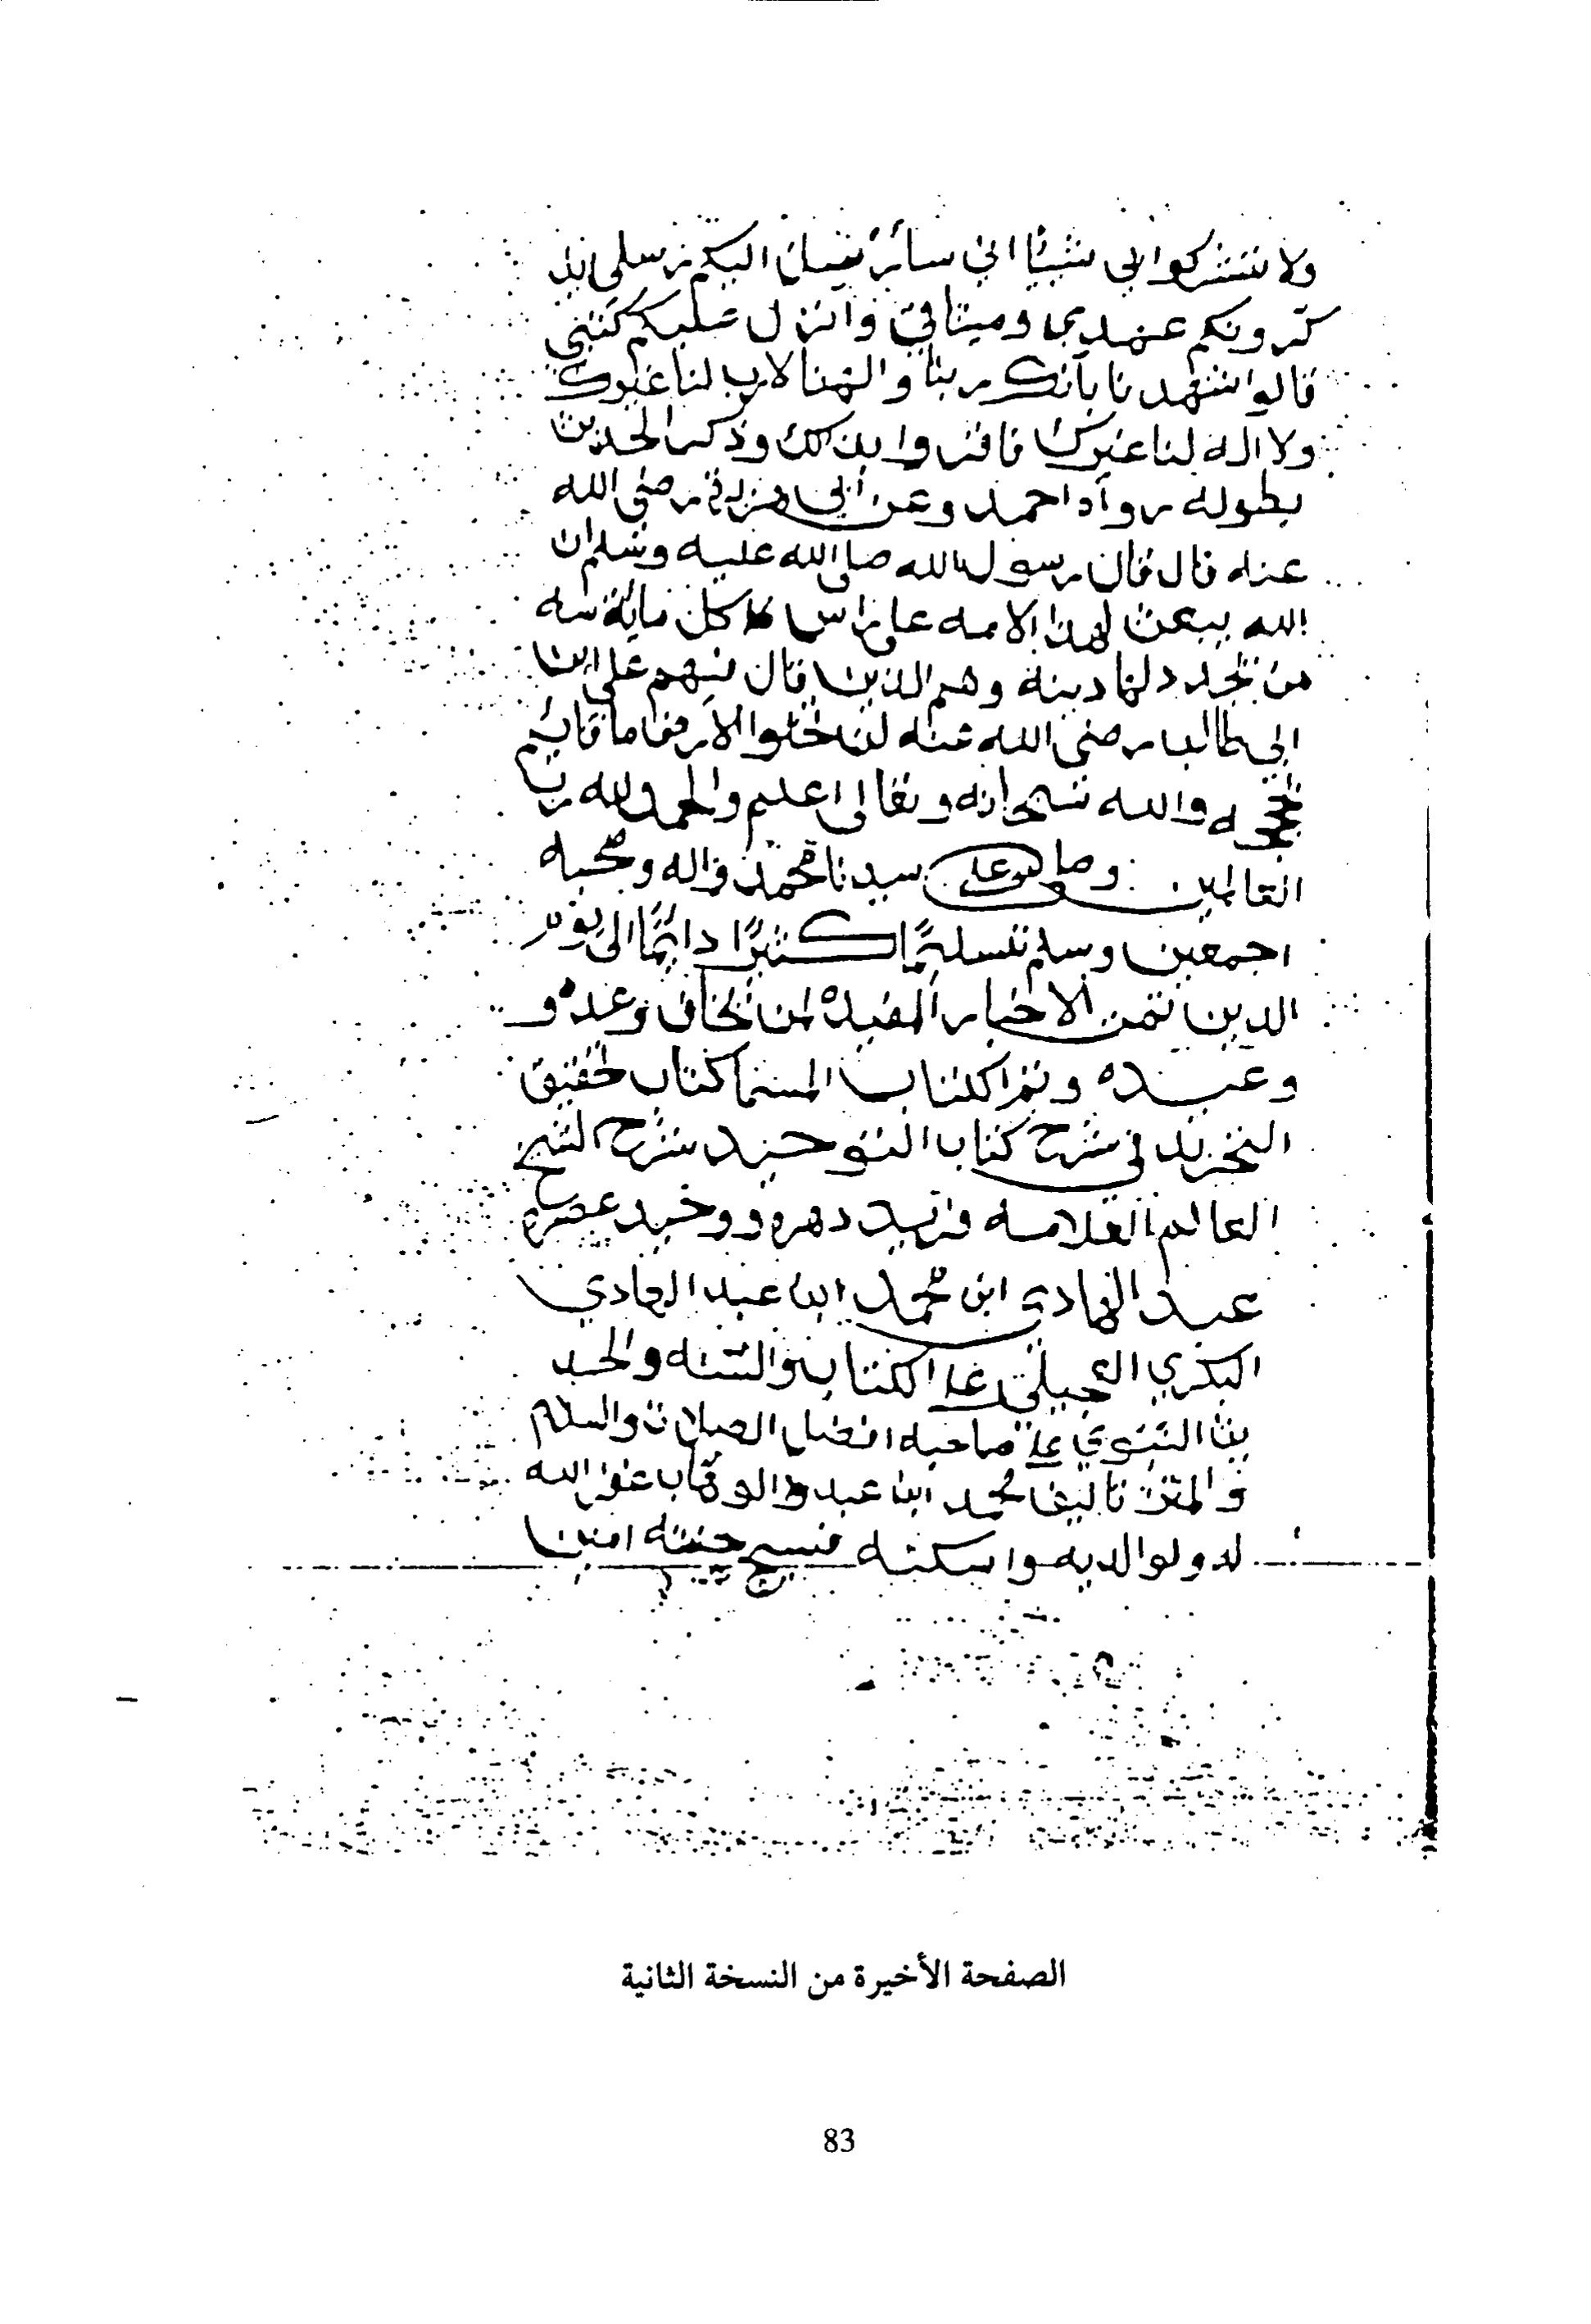 ولا تشركوا بي شيئا اني سائر سل اليكم رسلي يذ
كرونكم عهدي وميثاقي وانزل عليكم كتبي
قالوا شهدنا بأنك ربنا والهنا لا رب لنا غيرك
ولا اله لنا غيرك فاقروا بذلك وذكر الحديث
بطوله رواه احمد وعن ابي هريرة رضي الله
عنه قال قال رسول الله صلى الله عليه وسلم ان
الله يبعث لهذا الامه على راس كل ماية سنه
من يجدد لها دينه وهم الذين قال فيهم علي ابن
ابي طالب رضي الله عنه لن تخلوا الارض من قايم
بحجه والله سبحانه وتعالى اعلم والحمد لله رب
العالمين وصلى الله على سيدنا محمد واله وصحبه
اجمعين وسلم تسليمًا كثيرًا دايمًا الى يوم
الدين تمت الاخبار المفيده لمن يخاف وعده و
وعيده وتم الكتاب المسما كتاب تحقيق
التجريد في شرح كتاب التوحيد شرح الشيخ
العالم العلامه فريد دهره ووحيد عصره
عبد الهادي ابن محمد ابن عبد الهادي
البكري العجيلي على الكتاب والسنه والحد
يث النبوي على صاحبه افضل الصلاة والسلام
والمتن تاليف محمد ابن عبد الوهاب غفر الله
له ولوالديه واسكنه فسيح جنته امين
الصفحة الأخيرة من النسخة الثانية
83